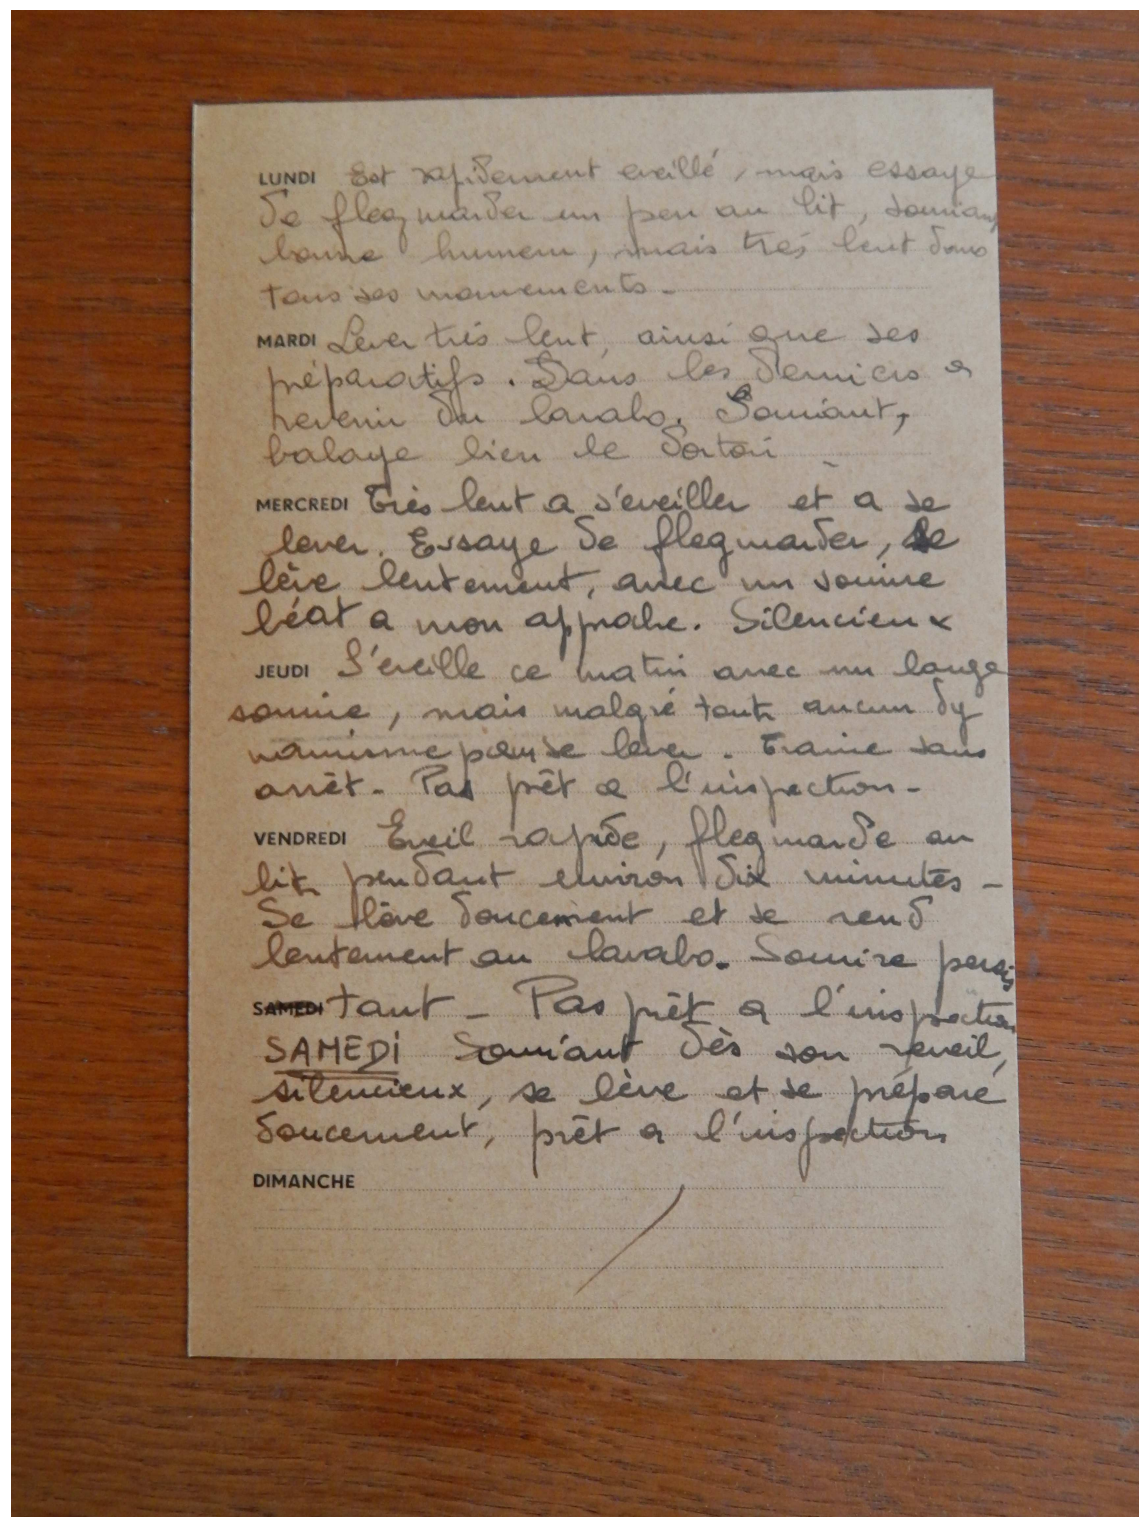 LUNDI Est rapidement eveillé, mais essaye
de flegmarder un peu au lit, souriant
bonne humeur, mais très lent dans
tous ses mouvements -
MARDI Lever très lent, ainsi que ses
préparatifs. Dans les derniers a
revenir du lavabo. Souriant,
balaye bien le dortoir
MERCREDI Très lent a s'eveiller et a se
lever. Essaye de flegmarder, se
lève lentement, avec un sourire
béat a mon approche. Silencieux
JEUDI S'eveille ce matin avec un large
sourire, mais malgré tout aucun dy
namisme pour se lever. Traine sans
arrêt - Pas prêt a l'inspection -
VENDREDI Eveil rapide, flegmarde au
lit pendant environ dix minutes -
Se lève doucement et se rend
lentement au lavabo. Sourire persis
SAMEDI tant - Pas prêt a l'inspection
SAMEDI Souriant dès son reveil,
silencieux, se lève et se prépare
doucement, prêt a l'inspection
DIMANCHE